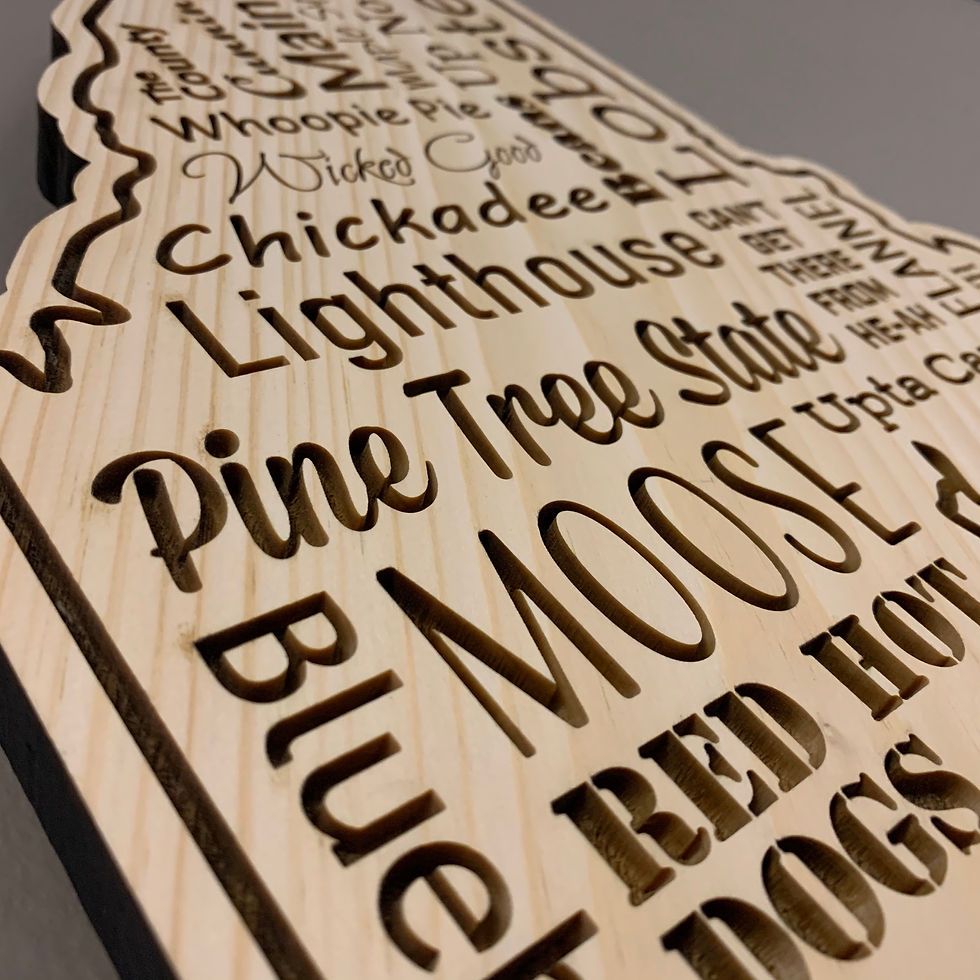 The
County
Main
Up No
Lobste
Whoopie Pie
Wicked Good
Beans
Chickadee
Lighthouse
CAN'T
GET
THERE
FROM
HE-AH
FLANNEL
Pine Tree State
Upta Ca
MOOSE
RED HOT
DOGS
Blueb